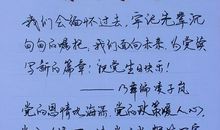 我们会缅怀过去，牢记先辈沉
甸甸的嘱托，我们面向未来，为党续
写新的篇章！祝党生日快乐！
——乃麻湖 孟子岚
党的恩情比海深，党的政策暖人心，